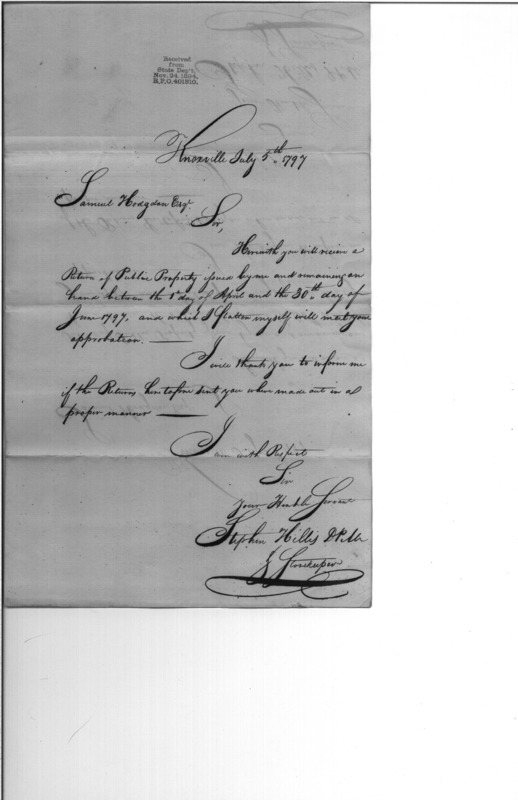 Received
from
State Dep't.
Nov. 24, 1894,
R.P.O. 401810.
Knoxville July 5th 1797
Samuel Hodgdon Esqr.
Sir,
Herewith you will receive a
Return of Public Property issued by me and remaining on
hand between the 1st day of April and the 30th day of
June 1797, and which I flatter myself will meet your
approbation. —
I will thank you to inform me
if the Returns heretofore sent you where made out in a
proper manner —
I am with Respect
Sir
Your Humble Servant
Stephen Hillis
& Storekeeper